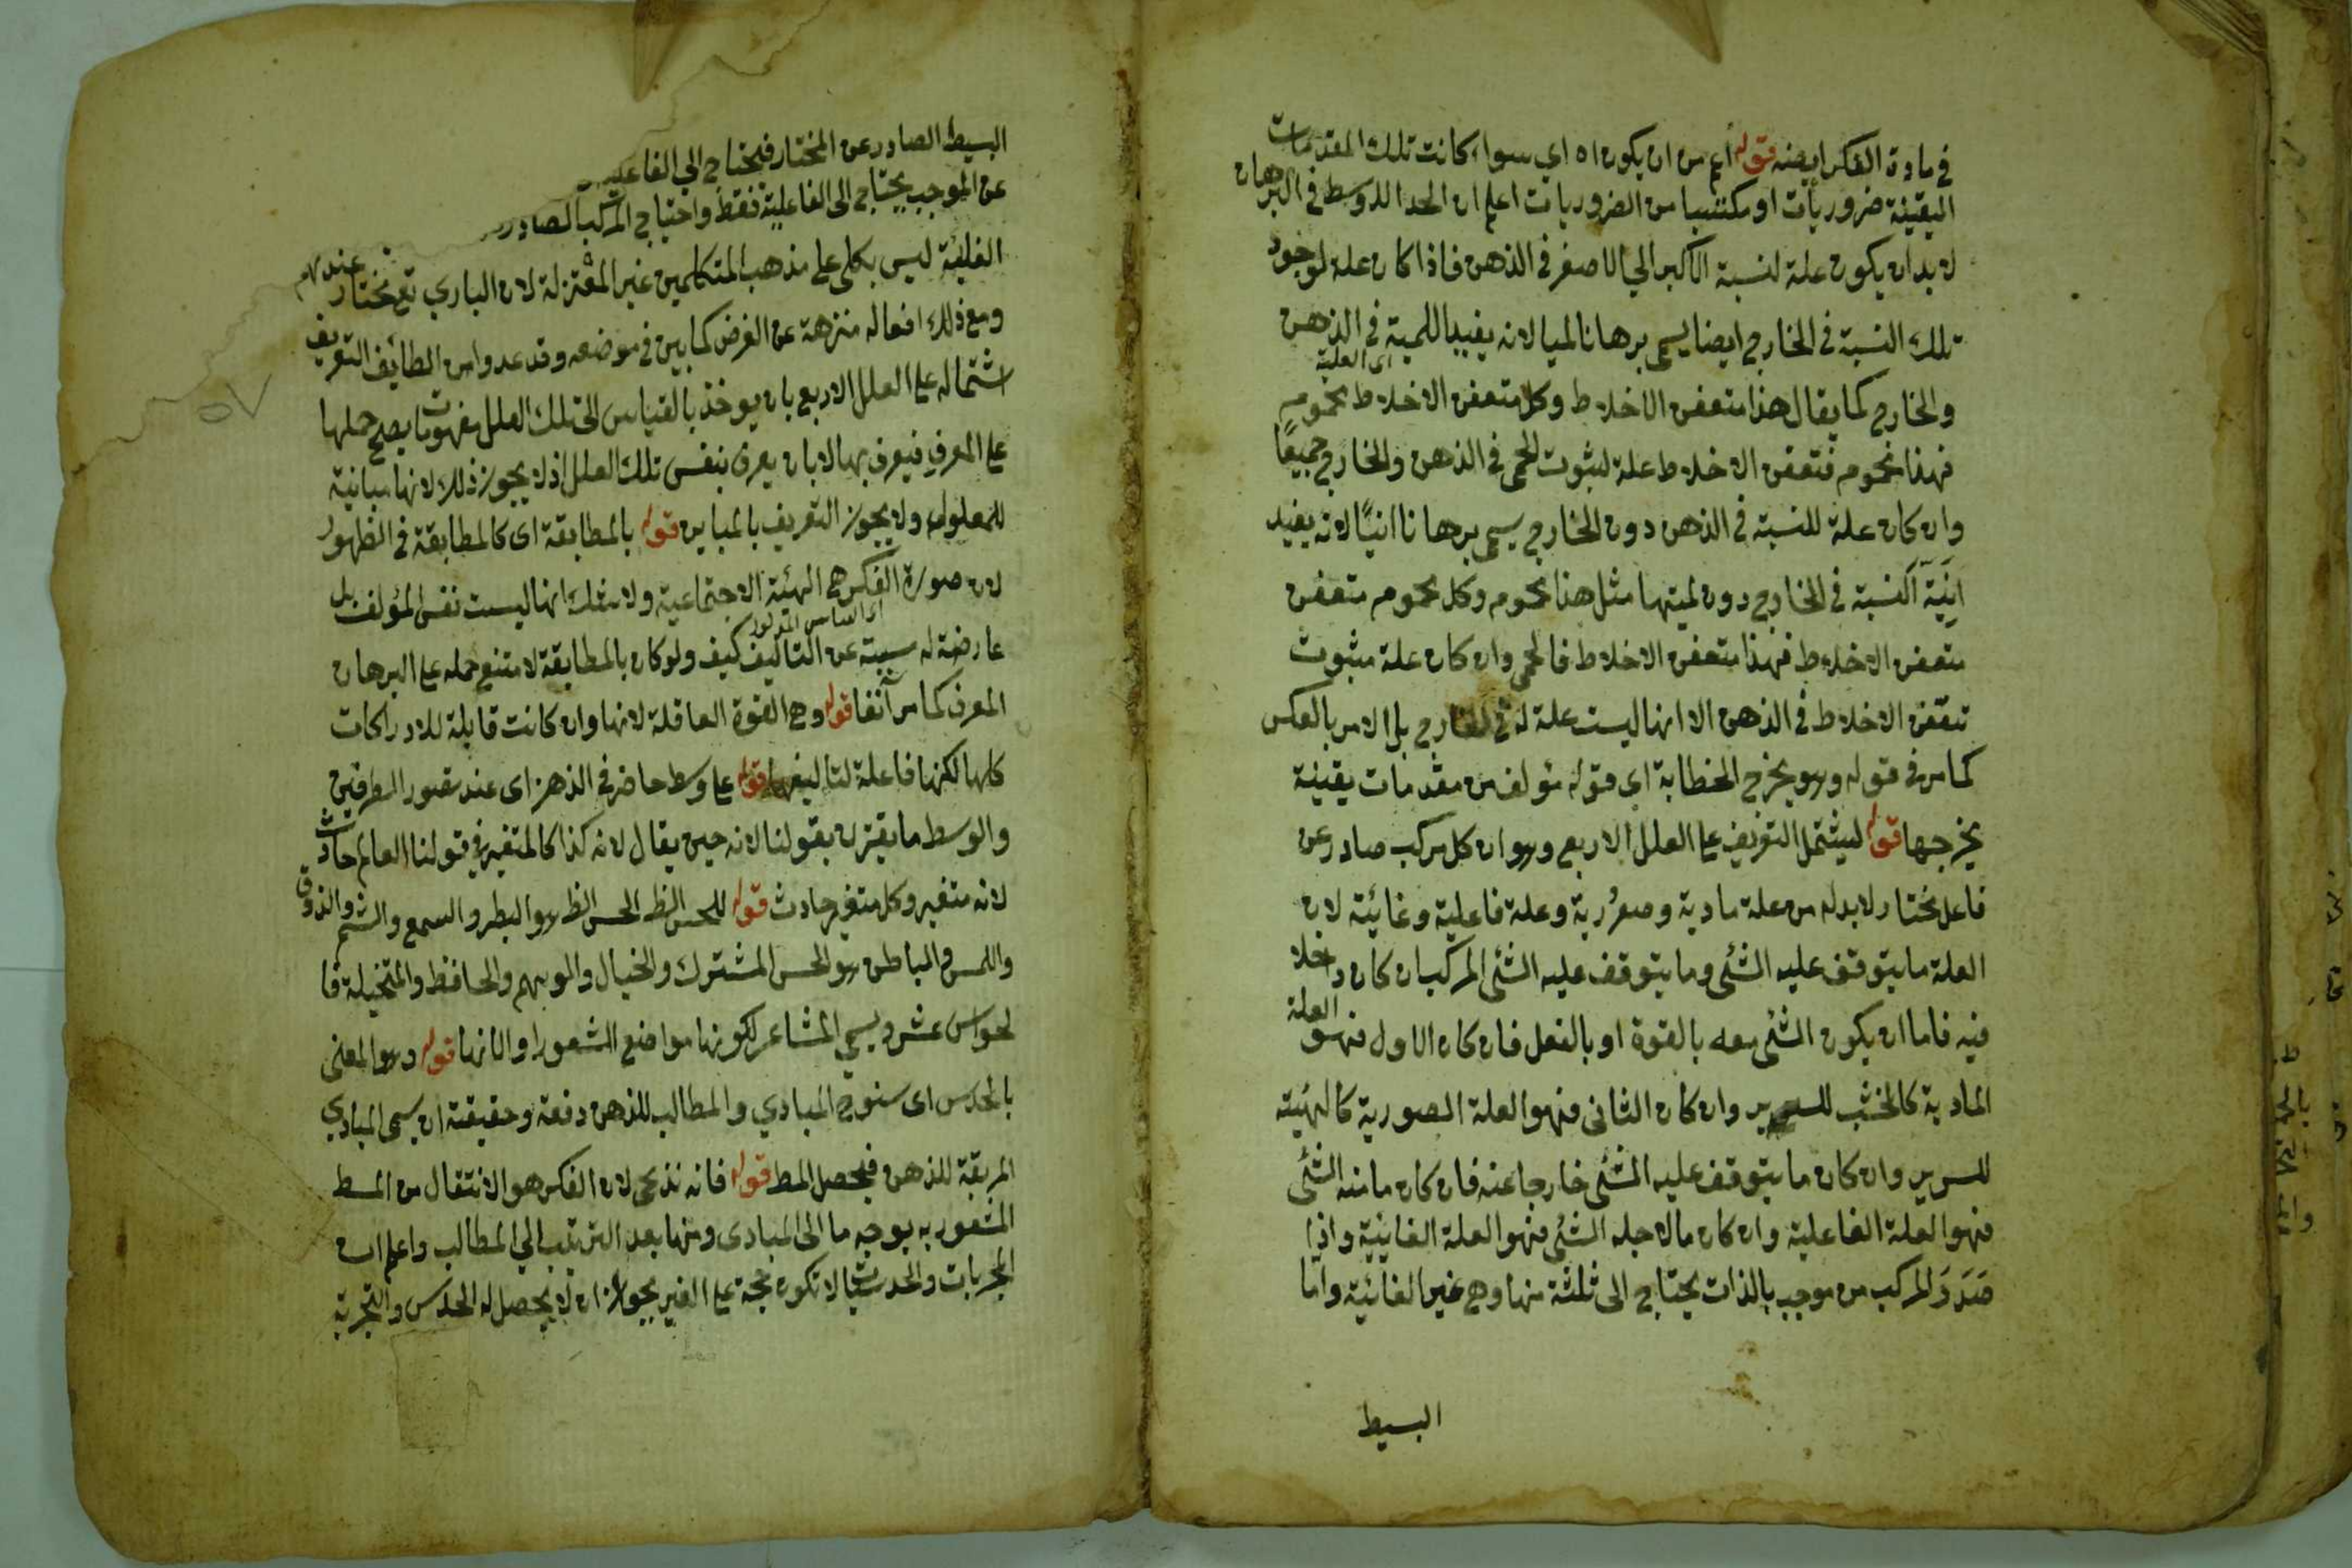 في مادة الفكر ايضنه قوله اعم من ان يكون اه اى سواء كانت تلك المقدمات
اليقينة ضروريات او مكتسبا من الضروريات اعلم ان الحد الاوسط في البرهان
لا بد ان يكون علة لنسبة الاكبر الي الاصغر في الذهن فاذا كان علة لوجود
تلك النسبة في الخارج ايضا يسمى برهانا لميا لانه يفيد اللمية في الذهن
اى العلية
والخارج كما يقال هذا متعفن الاخلاط وكل متعفن الاخلاط محموم
فهذا محموم فتعفن الاخلاط علة لثبوت الحمى في الذهن والخارج جميعًا
وان كان علة للنسبة في الذهن دون الخارج يسمى برهانا انيًا لانه يفيد
انية النسبة في الخارج دون لميتها مثل هذا محموم وكل محموم متعفن
متعفن الاخلاط فهذا متعفن الاخلاط فالحمى وان كان علة مثبوت
تعفن الاخلاط في الذهن الا انها ليست علة له في الخارج بل الامر بالعكس
كما مر في قوله وهو يخرج الخطابة اى قوله مؤلف من مقدمات يقينة
يخرجها قوله ليشتمل التعريف على العلل الاربع وهو ان كل مركب صادر عن
فاعل مختار لا بد له من علة مادية وصورية وعلة فاعلية وغائية لان
العلة ما يتوقف عليه الشئ وما يتوقف عليه الشئ المركب ان كان داخلا
فيه فاما ان يكون الشئ معه بالقوة او بالفعل فان كان الاول فهو العلة
المادية كالخشب للسرير وان كان الثانى فهو العلة الصورية كالهيئة
للسرير وان كان ما يتوقف عليه الشئ خارجا عنه فان كان ما منه الشئ
فهو العلة الفاعلية وان كان ما لاجله الشئ فهو العلة الغائية واذا
صَدَرَ المركب من موجب بالذات يحتاج الى ثلثة منها وهي غير الغائية واما
البسيط
البسيط الصادر عن المختار فيحتاج الي الفاعلية
عن الموجب يحتاج الى الفاعلية فقط واحتياج المركب الصادر
ليس بكلى على مذهب المتكلمين غير المعتزلة لان الباري تع مختار عندهم
ومع ذلك افعاله منزهة عن الغرض كما بين في موضعه وقد عدوا من لطائف التعريف
اشتماله على العلل الاربع بان يوخذ بالقياس الى تلك العلل مفهومات يصح حملها
على المعرف فيعرف بها لا بان يعرف بنفس تلك العلل اذ لا يجوز ذلك لانها مباينة
للمعلول ولا يجوز التعريف بالمباين قوله بالمطابقة اى كالمطابقة في الظهور
لان صورة الفكر هي الهيئة الاجتماعية ولا شك انها ليست نفس المؤلف بل
عارضة له سببية عن التاليف كيف ولو كان بالمطابقة لامتنع حمله على البرهان
المعرف كما مر آنفا قوله وهي القوة العاقلة لانها وان كانت قابلة للادراكات
كلها لكنها فاعلة لتاليفها قوله على وسط حاضر في الذهن اى عند تصور الطرفين
والوسط ما يقترن بقولنا لانه حين يقال لانه كذا كالمتغير في قولنا العالم حادث
لانه متغير وكل متغير حادث قوله للحس الظ الحس الظ هو البصر والسمع والشم والذوق
واللمس والباطن هو الحس المشترك والخيال والوهم والحافظ والمتخيلة فا
لحواس عشر ويسمي المشاعر لكونها مواضع الشعور او الاتها قوله وهو المعنى
بالحدس اى سنوح المبادي والمطالب للذهن دفعة وحقيقته ان يسمى المبادي
المرتبة للذهن فيحصل المط قوله فانه تدريجى لان الفكر هو الانتقال من المط
المشعور به بوجه ما الى المبادى ومنها بعد الترتيب الي المطالب واعلم ان
المجربات والحدسيات لا تكون حجة على الغير بجواز ان لا يحصل له الحدس والتجربة